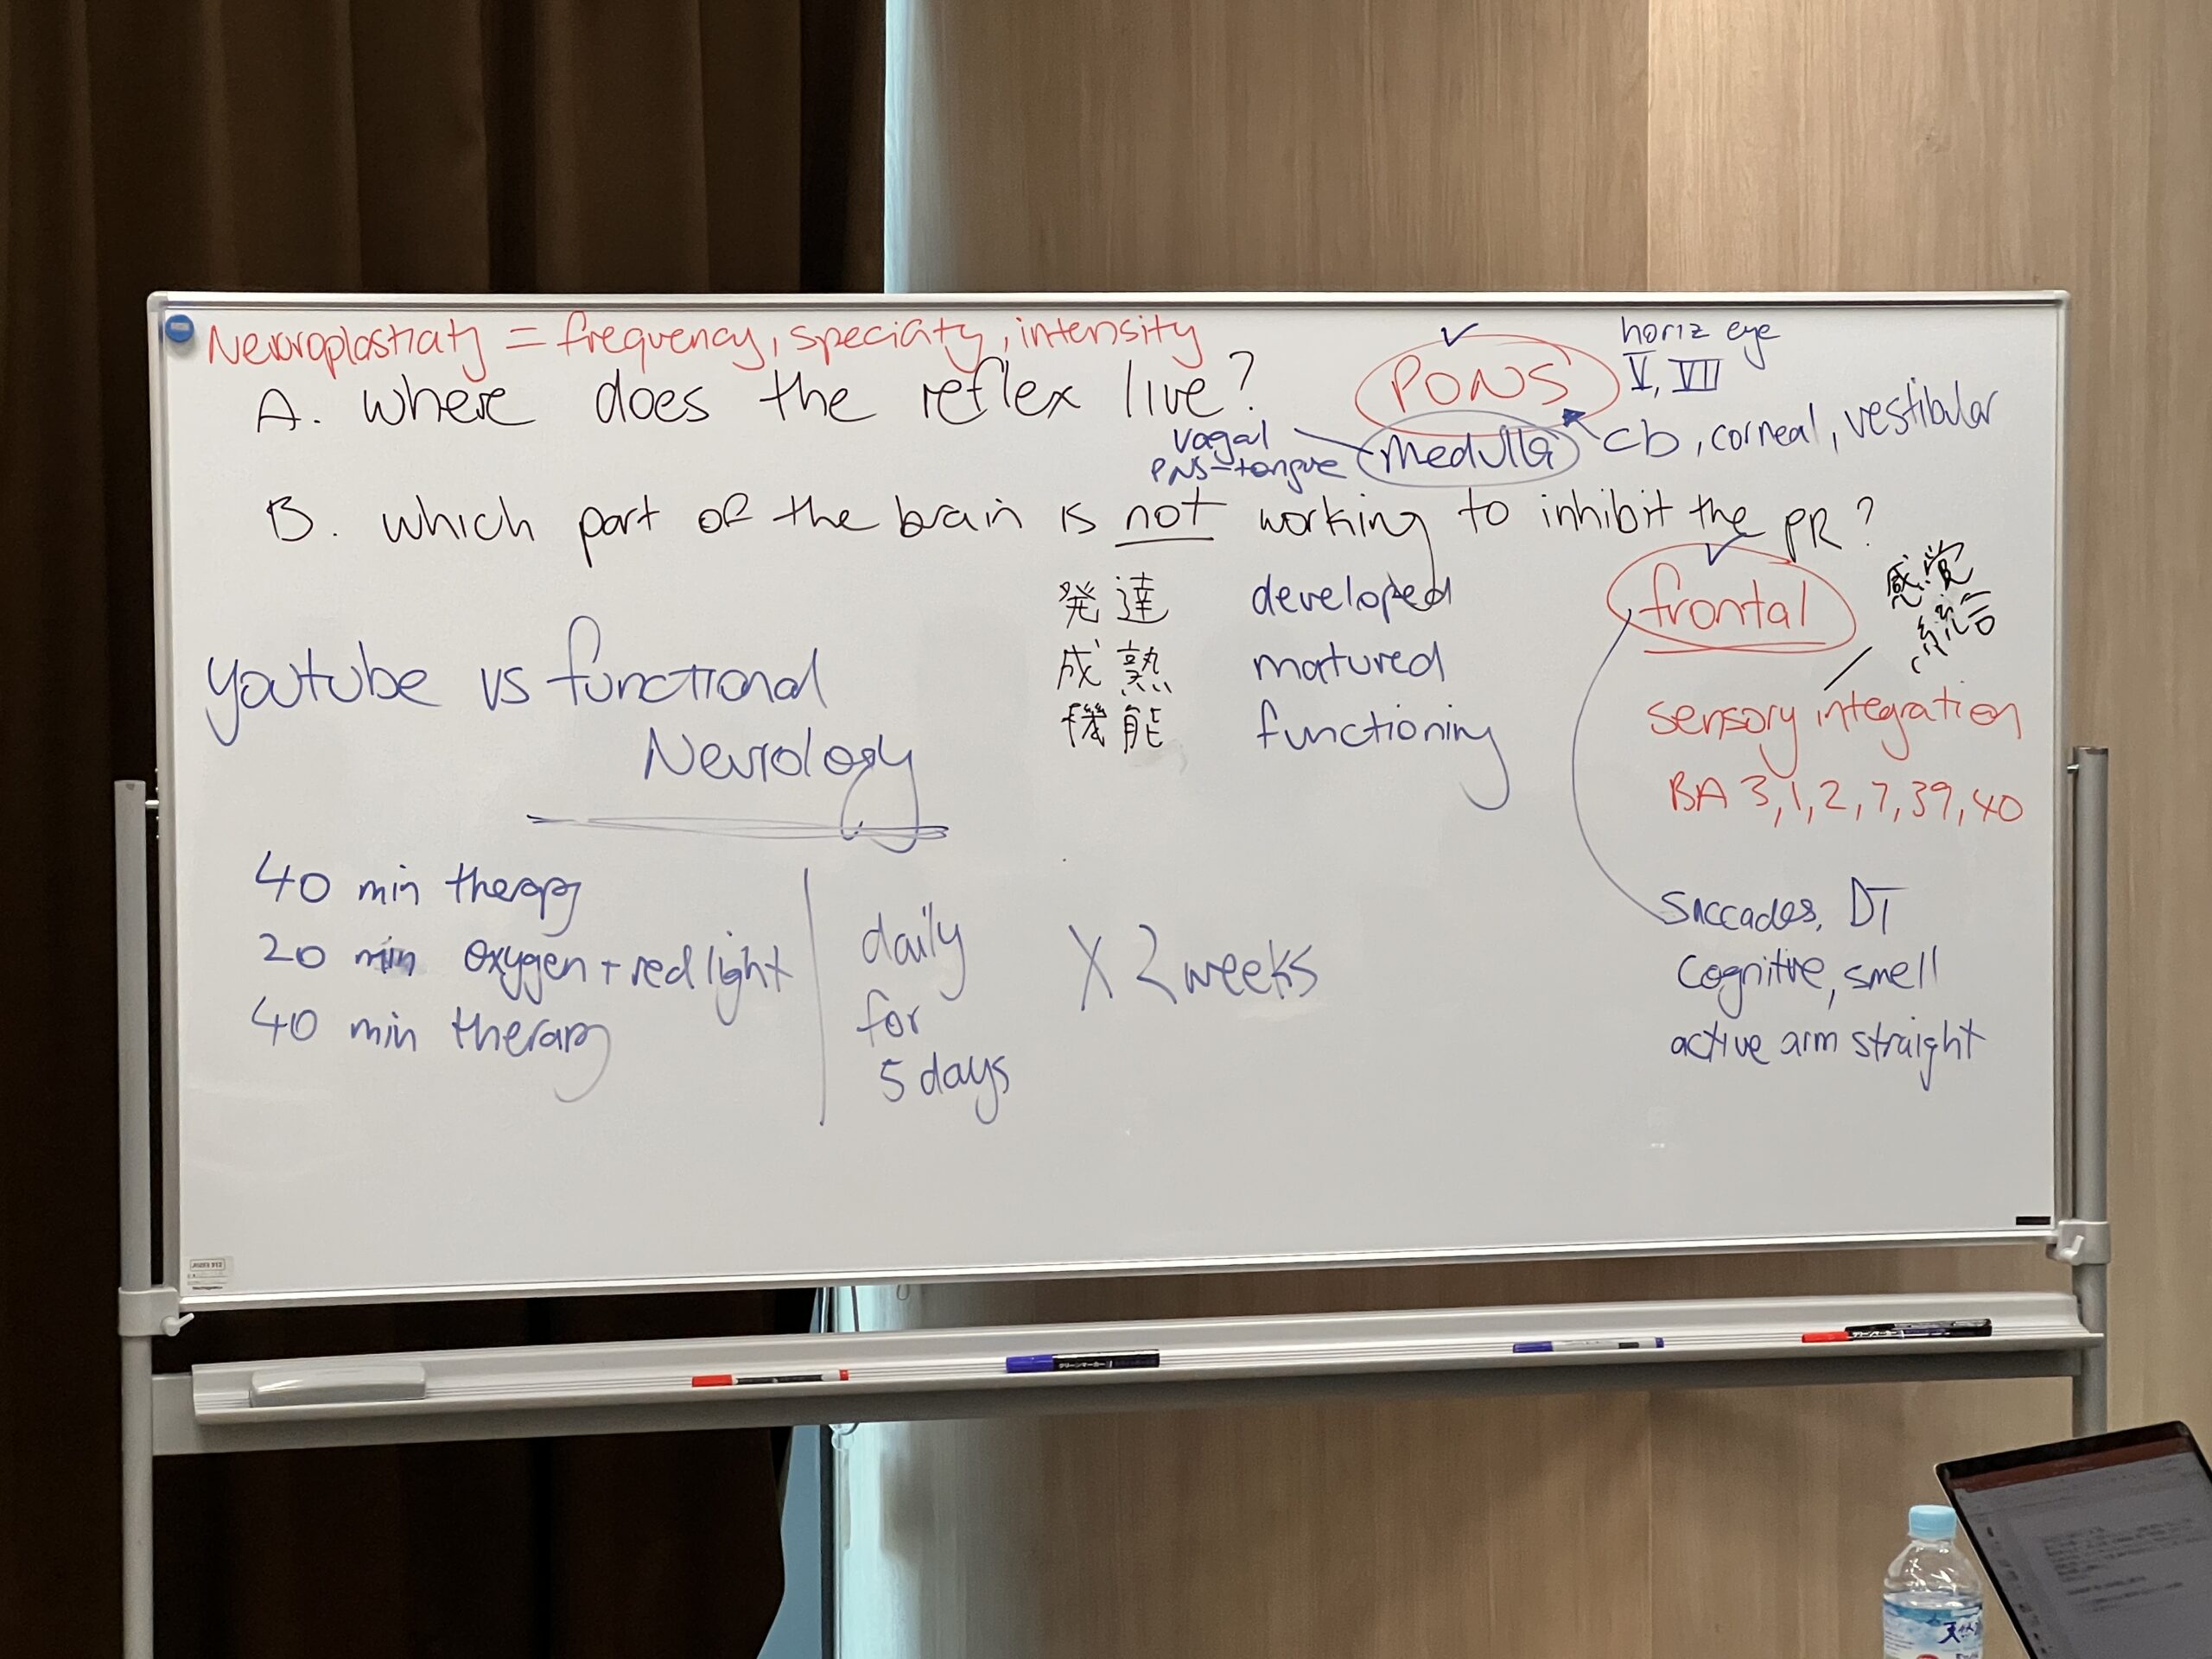 Neuroplasticity = frequency, speciaty, intensity
A. where does the reflex live?
PONS
horiz eye
V, VII
vagal
PNS-tongue
medulla
cb, corneal, vestibular
B. which part of the brain is not working to inhibit the PR?
発達 developed
成熟 matured
機能 functioning
frontal
感覚
統合
sensory integration
BA 3,1,2,7,39,40
youtube vs functional
Neurology
40 min therapy
20 min oxygen + red light
40 min therapy
daily
for
5 days
X 2 weeks
Saccades, DT
Cognitive, smell
active arm straight